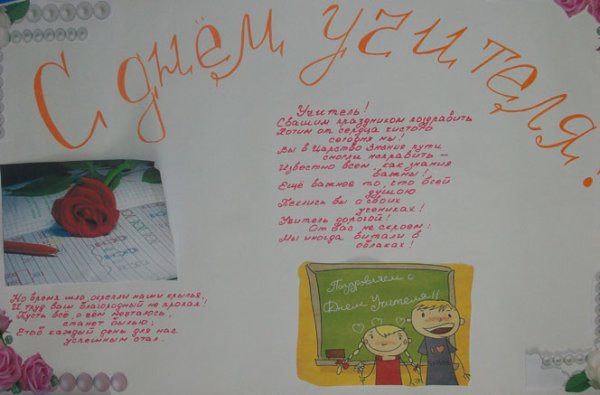 С днём учителя!
Учитель!
С вашим праздником поздравить
Хотим от сердца чистого
сегодня мы!
Вы в Царство Знания пути
смогли исправить –
Известно всем, как знания
важны!
Ещё важнее то, что всей
душою
Пеклись вы о своих
учениках!
Учитель дорогой!
От вас не скроем:
Мы иногда витали в
облаках!
Но время шло, окрепли наши крылья,
И труд ваш благородный не пропал!
Пусть всё, о чём мечталось,
станет былью,
Чтоб каждый день для вас
успешным стал.
Поздравляем с
Днем Учителя!!